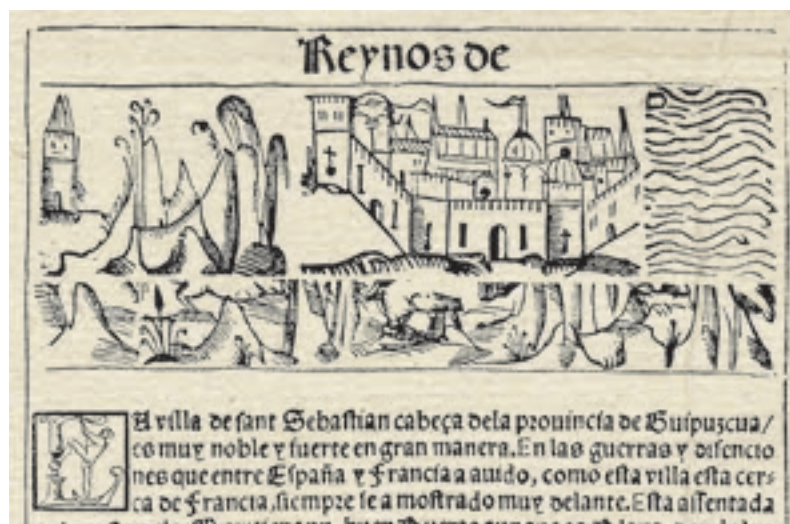 Reynos de
LA villa de sant Sebastian cabeça dela prouincia de Guipuzcua/
es muy noble y fuerte en gran manera. En las guerras y disencio
nes que entre España y Francia a auido, como esta villa esta cer-
ca de Francia, siempre se a mostrado muy delante. Esta assentada